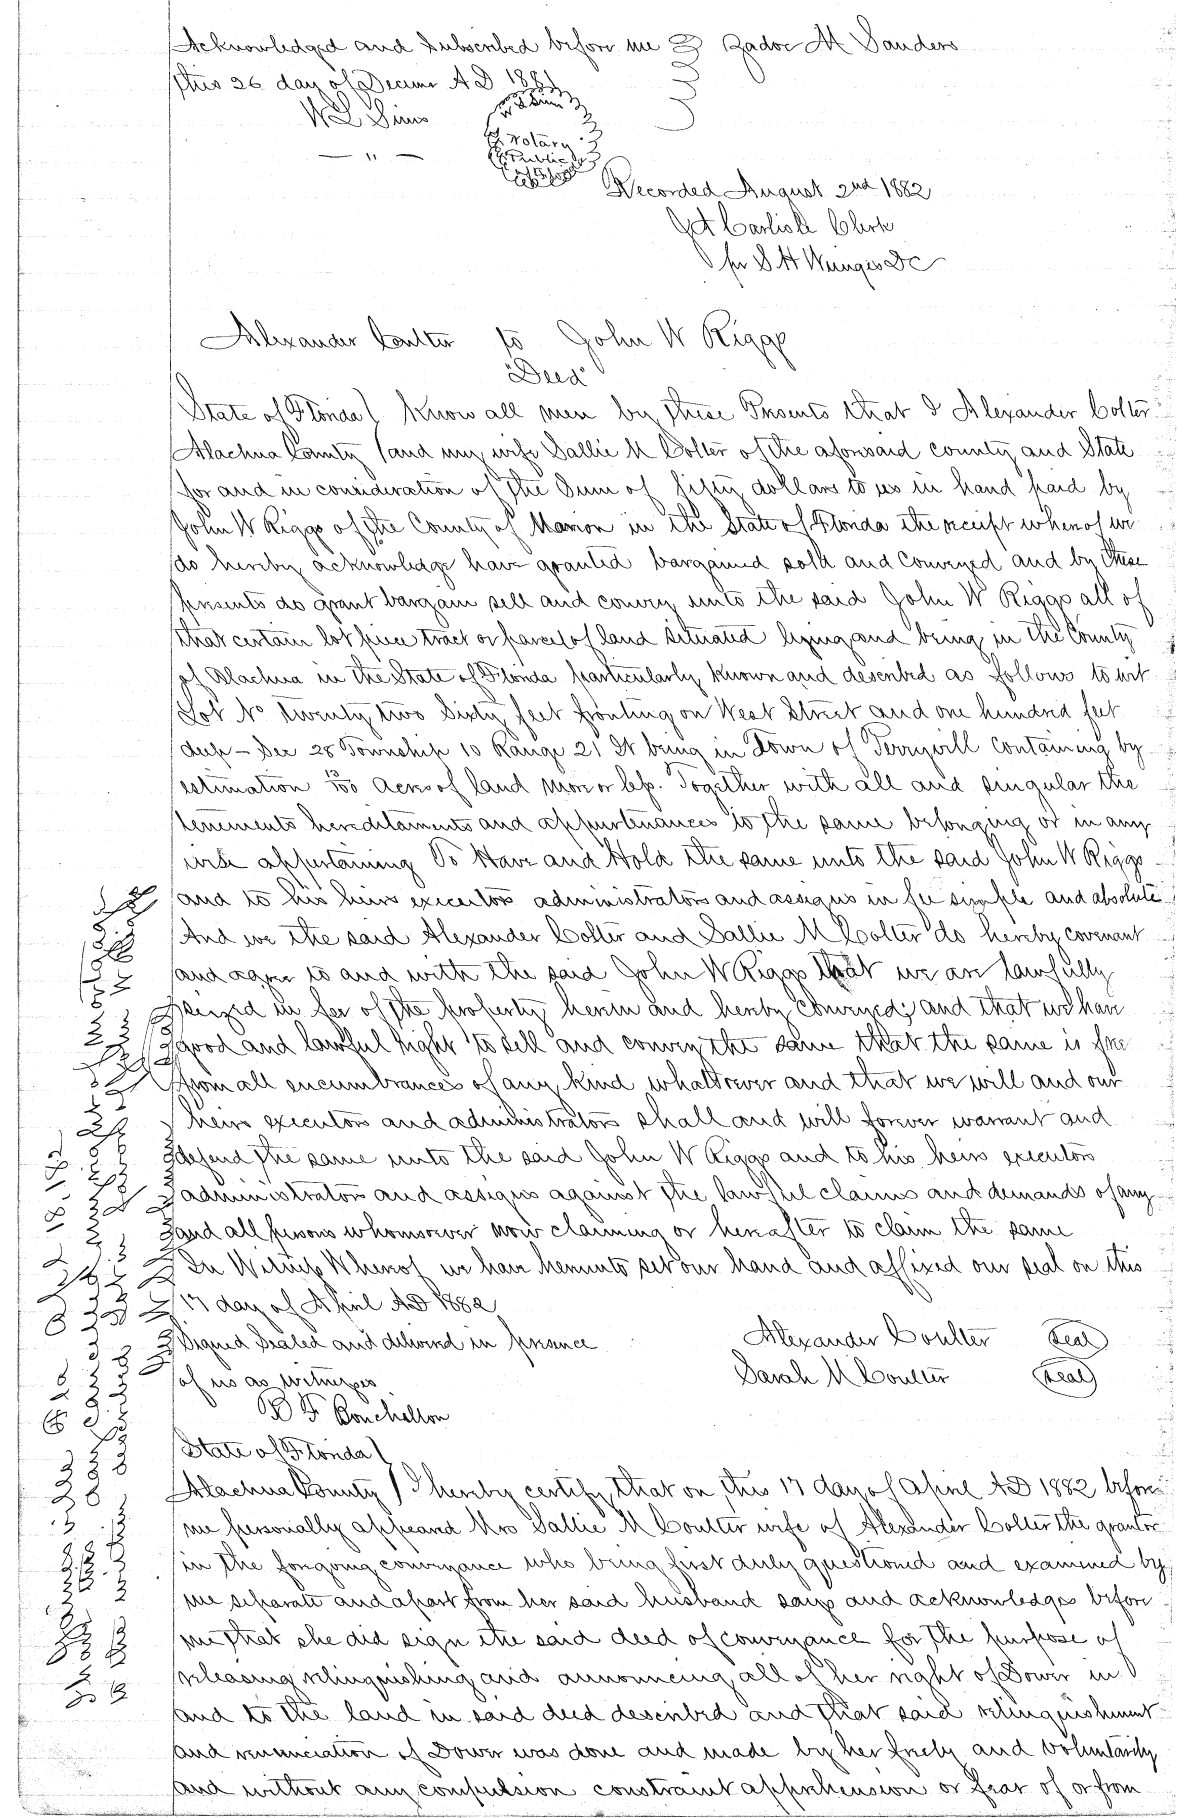 Acknowledged and Subscribed before me Zadoc M Sanders
this 26 day of Decemr AD 1881
W L Sims
W L Sims
Notary
Public
Recorded August 2nd 1882
J A Carlisle Clerk
per S H Wienges DC
Alexander Coulter to John W Riggs
"Deed"
State of Florida ( Know all men by these Presents that I Alexander Colter
Alachua County ( and my wife Sallie M Colter of the aforesaid county and State
for and in consideration of the Sum of fifty dollars to us in hand paid by
John W Riggs of the County of Marion in the State of Florida the receipt whereof we
do hereby acknowledge have granted bargained sold and Conveyed and by these
presents do grant bargain sell and convey unto the said John W Riggs all of
that certain lot piece tract or parcel of land situated lying and being in the County
of Alachua in the State of Florida particularly known and described as follows to wit
Lot No twenty two Sixty feet fronting on West Street and one hundred feet
deep - Sec 28 Township 10 Range 21 It being in Town of Perryvill containing by
estimation 13/100 Acres of land more or less. Together with all and singular the
tenements hereditaments and appurtenances to the same belonging or in any
wise appertaining To Have and Hold the same unto the said John W Riggs
and to his heirs executors administrators and assigns in fee simple and absolute
And we the said Alexander Colter and Sallie M Colter do hereby covenant
and agree to and with the said John W Riggs that we are lawfully
seized in fee of the property herein and hereby conveyed; and that we have
good and lawful right to sell and convey the same that the same is free
from all encumbrances of any kind whatsoever and that we will and our
heirs executors and administrators shall and will forever warrant and
defend the same unto the said John W Riggs and to his heirs executors
administrators and assigns against the lawful claims and demands of any
and all persons whomsoever now claiming or hereafter to claim the same
In Witness Whereof we have hereunto set our hand and affixed our seal on this
17 day of April AD 1882
Signed Sealed and delivered in presence Alexander Coulter Seal
of us as witnesses Sarah M Coulter Seal
B F Bonchelton
State of Florida (
Alachua County ) I hereby certify that on this 17 day of April AD 1882 before
me personally appeared Mrs Sallie M Coulter wife of Alexander Colter the grantor
in the foregoing conveyance who being first duly questioned and examined by
me separate and apart from her said husband says and acknowledges before
me that she did sign the said deed of conveyance for the purpose of
releasing relinquishing and announcing all of her right of Dower in
and to the land in said deed described and that said relinquishment
and renunciation of Dower was done and made by her freely and voluntarily
and without any compulsion constraint apprehension or fear of or from